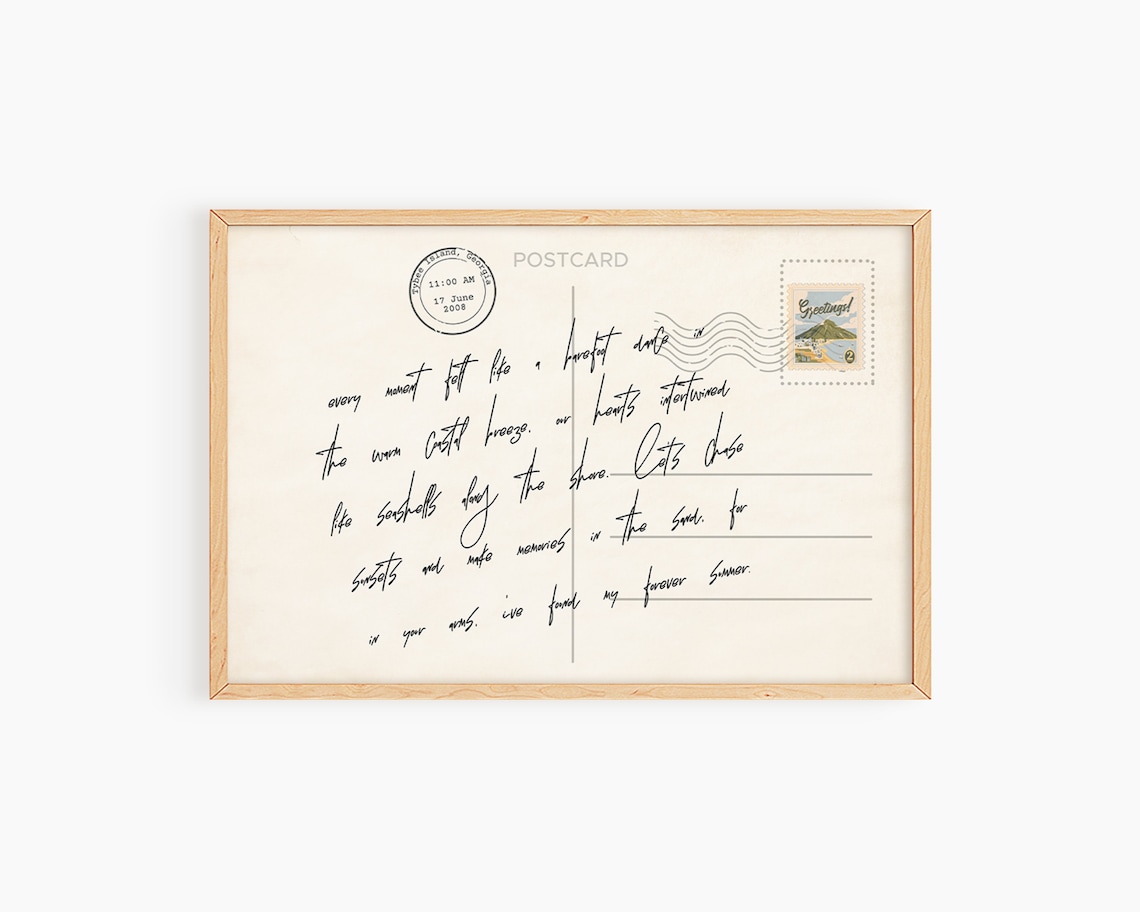 Tybee Island, Georgia
11:00 AM
17 June
2008
POSTCARD
Greetings!
2
every moment felt like a barefoot dance in
the warm coastal breeze. our hearts intertwined
like seashells along the shore. Let's chase
sunsets and make memories in the sand. for
in your arms, i've found my forever summer.